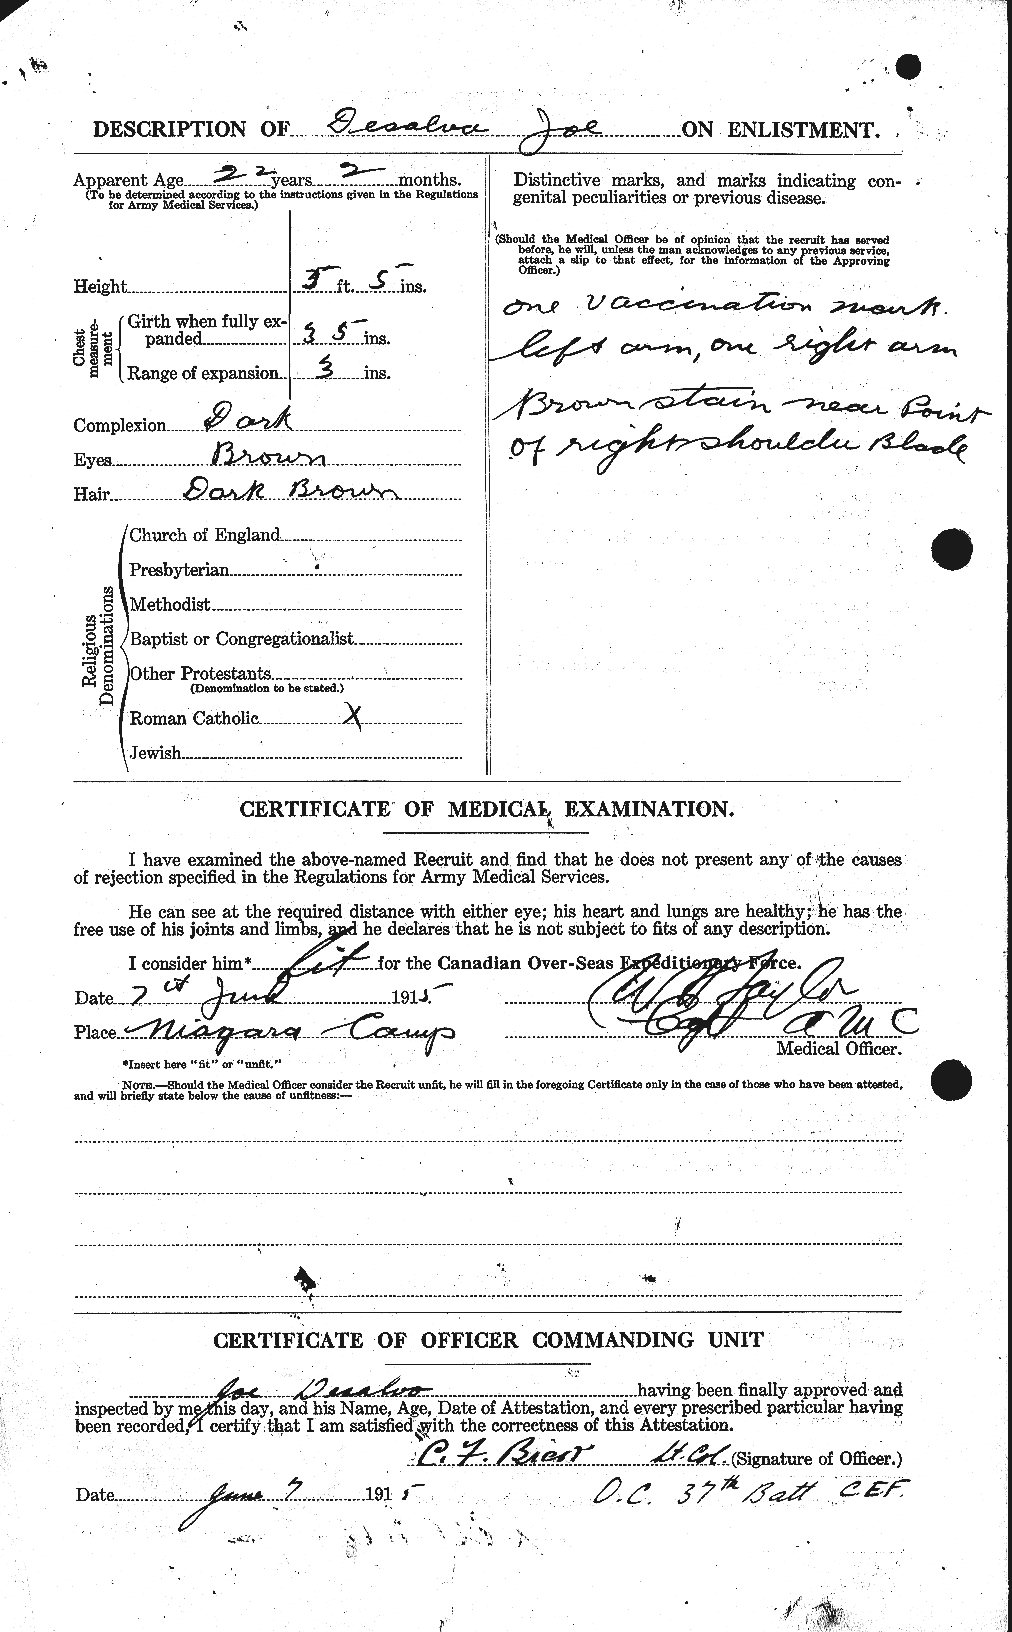 DESCRIPTION OF Desalva Joe ON ENLISTMENT.
Apparent Age 22 years 2 months.
(To be determined according to the instructions given in the Regulations
for Army Medical Services.)
Height 5 ft. 5 ins.
Chest measurement
Girth when fully ex-
panded 35 ins.
Range of expansion 3 ins.
Complexion Dark
Eyes Brown
Hair Dark Brown
Religious Denominations
Church of England
Presbyterian
Methodist
Baptist or Congregationalist
Other Protestants
(Denomination to be stated.)
Roman Catholic X
Jewish
Distinctive marks, and marks indicating con-
genital peculiarities or previous disease.
(Should the Medical Officer be of opinion that the recruit has served
before, he will, unless the man acknowledges to any previous service,
attach a slip to that effect, for the information of the Approving
Officer.)
one vaccination mark.
left arm, one right arm
Brown stain near Point
of right shoulder Blade
CERTIFICATE OF MEDICAL EXAMINATION.
I have examined the above-named Recruit and find that he does not present any of the causes
of rejection specified in the Regulations for Army Medical Services.
He can see at the required distance with either eye; his heart and lungs are healthy; he has the
free use of his joints and limbs, and he declares that he is not subject to fits of any description.
I consider him* fit for the Canadian Over-Seas Expeditionary Force.
Date 7 June 1915
Taylor
Place Niagara Camp
Capt A M C
Medical Officer.
*Insert here "fit" or "unfit."
NOTE.—Should the Medical Officer consider the Recruit unfit, he will fill in the foregoing Certificate only in the case of those who have been attested,
and will briefly state below the cause of unfitness:—
CERTIFICATE OF OFFICER COMMANDING UNIT
Joe Desalvo having been finally approved and
inspected by me this day, and his Name, Age, Date of Attestation, and every prescribed particular having
been recorded, I certify that I am satisfied with the correctness of this Attestation.
C. F. Bick Lt. Col. (Signature of Officer.)
Date June 7 1915 O.C. 37th Batt CEF.